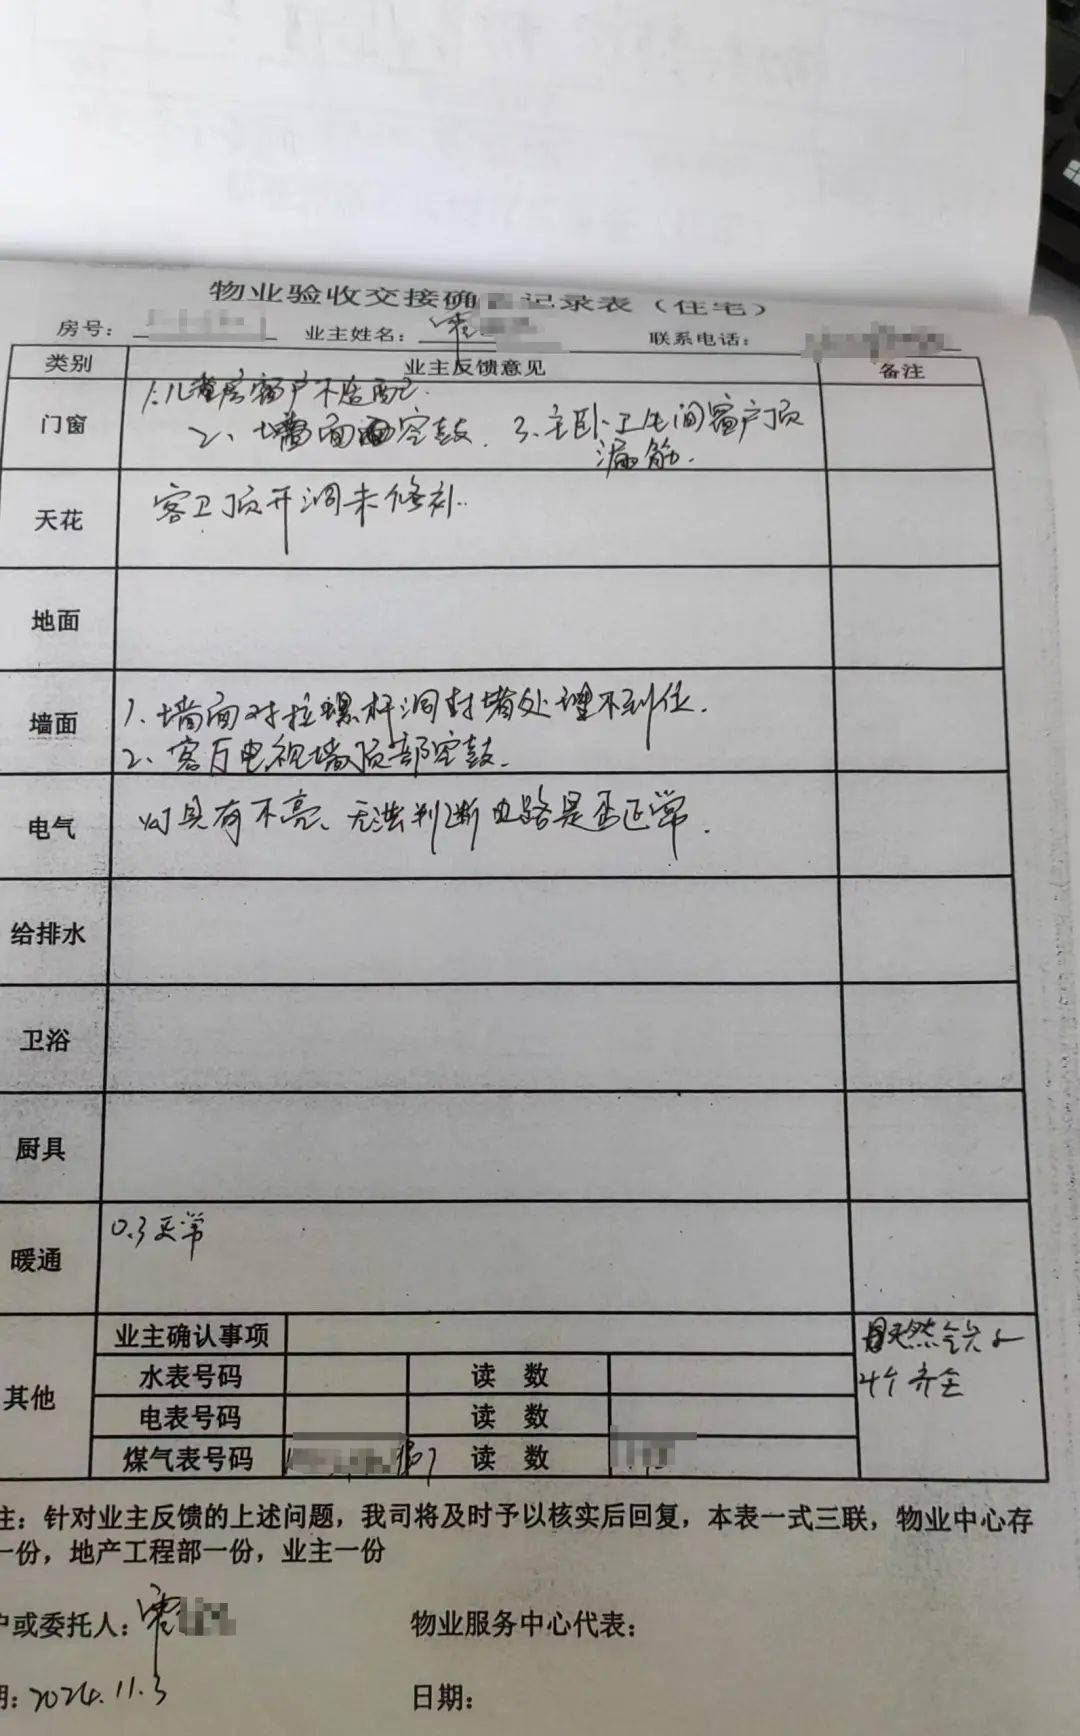 物业验收交接确 记录表（住宅）
房号： 业主姓名： 联系电话：
类别 业主反馈意见 备注
门窗 1.儿童房窗户不适配.
2、墙面空鼓. 3、主卧卫生间窗户顶
漏筋.
天花 客卫顶开洞未修补..
地面
墙面 1、墙面对拉螺杆洞封堵处理不到位.
2、客厅电视墙顶部空鼓.
电气 灯具有不亮、无法判断电路是否正常.
给排水
卫浴
厨具
暖通 0.3正常
其他 业主确认事项 天然
水表号码 读 数 4个齐全
电表号码 读 数
煤气表号码 读 数
注：针对业主反馈的上述问题，我司将及时予以核实后回复，本表一式三联，物业中心存
一份，地产工程部一份，业主一份
户或委托人： 物业服务中心代表：
期：2024.11.3 日期：